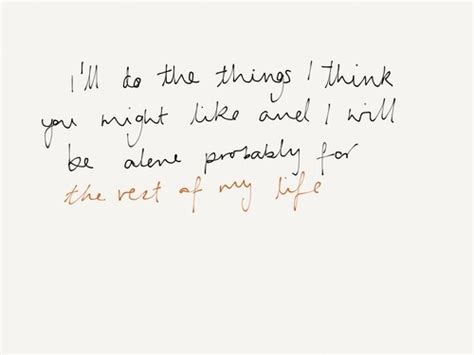 I'll do the things I think
you might like and I will
be alone probably for
the rest of my life